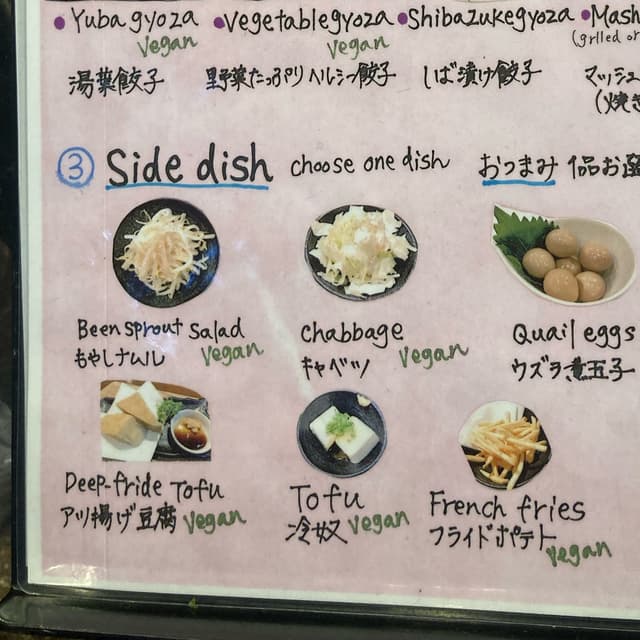 • Yuba gyoza • Vegetablegyoza • Shibazukegyoza • Mash
Vegan Vegan (grlled or
湯葉餃子 野菜たっぷりヘルシー餃子 しば漬け餃子 マッシュ
(焼き
③ Side dish choose one dish おつまみ 1品お選
Been sprout salad chabbage Quail eggs
もやしナムル Vegan キャベツ Vegan ウズラ煮玉子
Deep-fride Tofu Tofu French fries
アツ揚げ豆腐 Vegan 冷奴 Vegan フライドポテト
Vegan